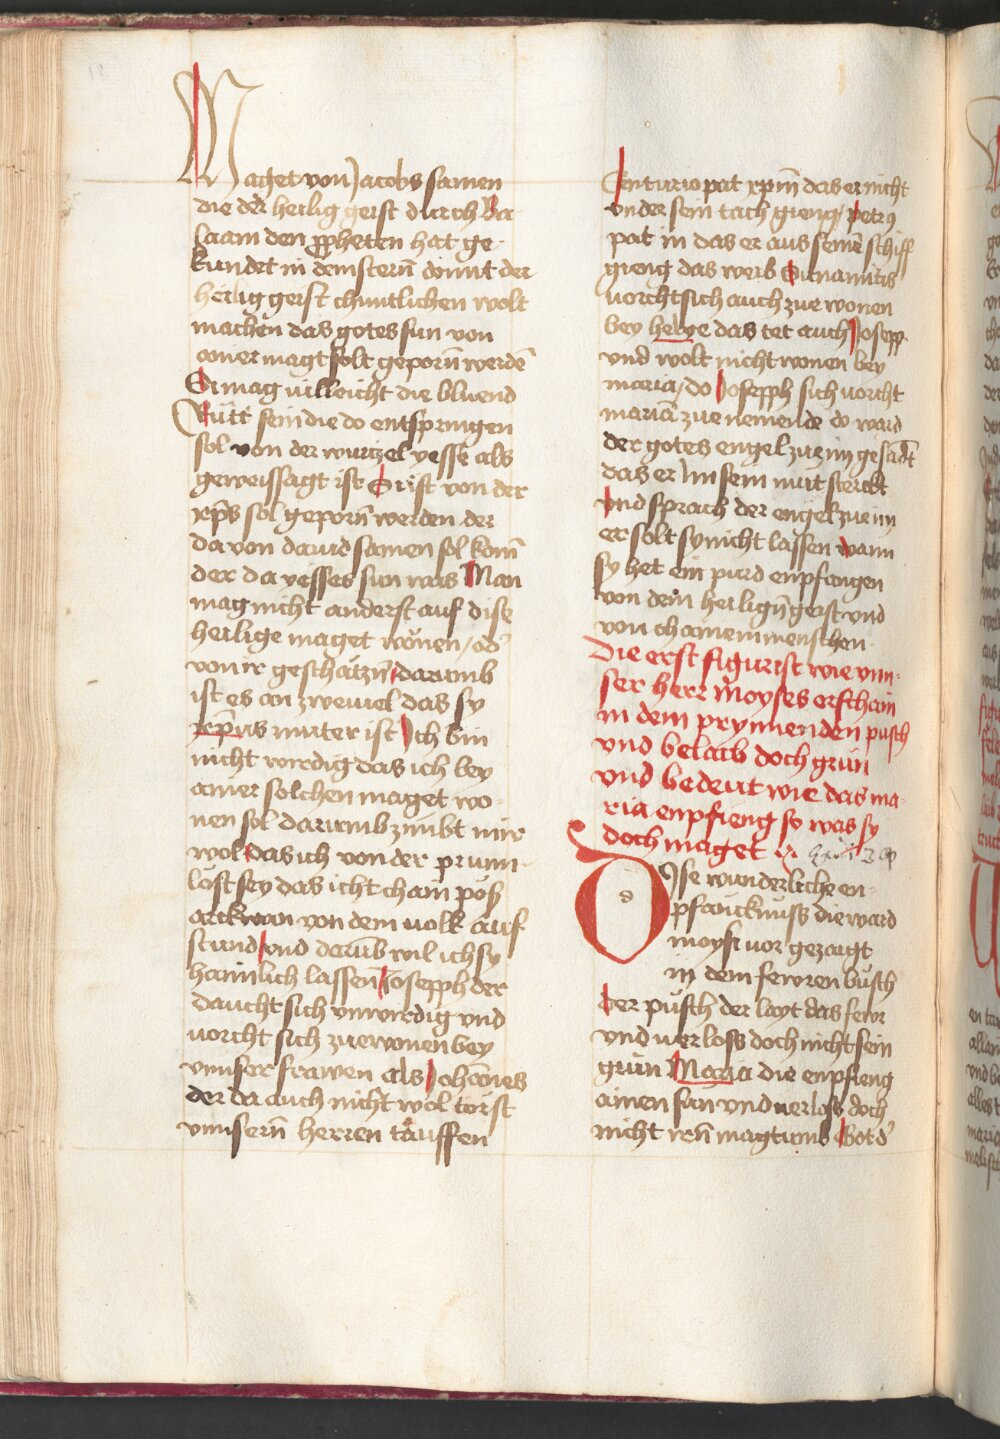 Maget von Jacobs samen
die der heilig geist durch ba
laam den ppheten hat ge-
kundet in dem sterñ domit der
heilig geist chuntlichen wolt
machen das gotes sun von
ainer magt solt geporñ werdē
Si mag villeicht die bluend
Rutt sein die do entspringen
sol von der wurtzel yesse als
geweissagt ist Si ist von der
xp̄s sol geporñ werden der
da von dauid samen sol kom̄
der da yesses sun was Man
mag nicht anderst auf dise
heilige maget wonen / od'
von ir geschatzñ darumb
ist es an zweiuel das sy
xp̄us muter ist Ich bin
nicht wirdig das ich bey
ainer solchen maget wo
nen sol darumb zimbt mir
wol das ich von der prunn
lost sey das icht chain pöß
arckwan von dem volk auf
stund vnd darūb wil ich sy
haimlich lassen Joseph der
daucht sich vnwirdig vnd
vorcht sich zuewonen bey
vnnser frawen als Johannes
der da auch nicht wol torst
vnnserñ herren tauffen
Centurio pat xpm̄ das er nicht
vnder sein tach gieng / petrꝰ
pat in das er aus seinē schiff
gieng das weib Sunamitis
vorcht sich auch zue wonen
bey helye das tet auch Josepp
vnd wolt nicht wonen bey
maria / do Josepph sich vorcht
mariā zue nemende do ward
der gotes engel zue im gesādt
das er im sein mut sterckt
vnd sprach der engel zue im
er solt sy nicht lassen wann
sy het ein purd enpfangen
von dem heiligñ geist vnd
von chainem menschen
Die erst figur ist wie vnn-
ser herr moyses erschain
in dem prynnenden pusch
vnd belaib doch grün
vnd bedeut wie das ma-
ria enpfieng so was sy
doch maget
Dise wunderliche en-
pfanckнuss die ward
moysi vor gezaigt
in dem fewren busch
der pusch der layt das fewr
vnd verloss doch nicht sein
grün Maria die enpfieng
ainen sun vnd verloss doch
nicht irñ magtumb Got d'